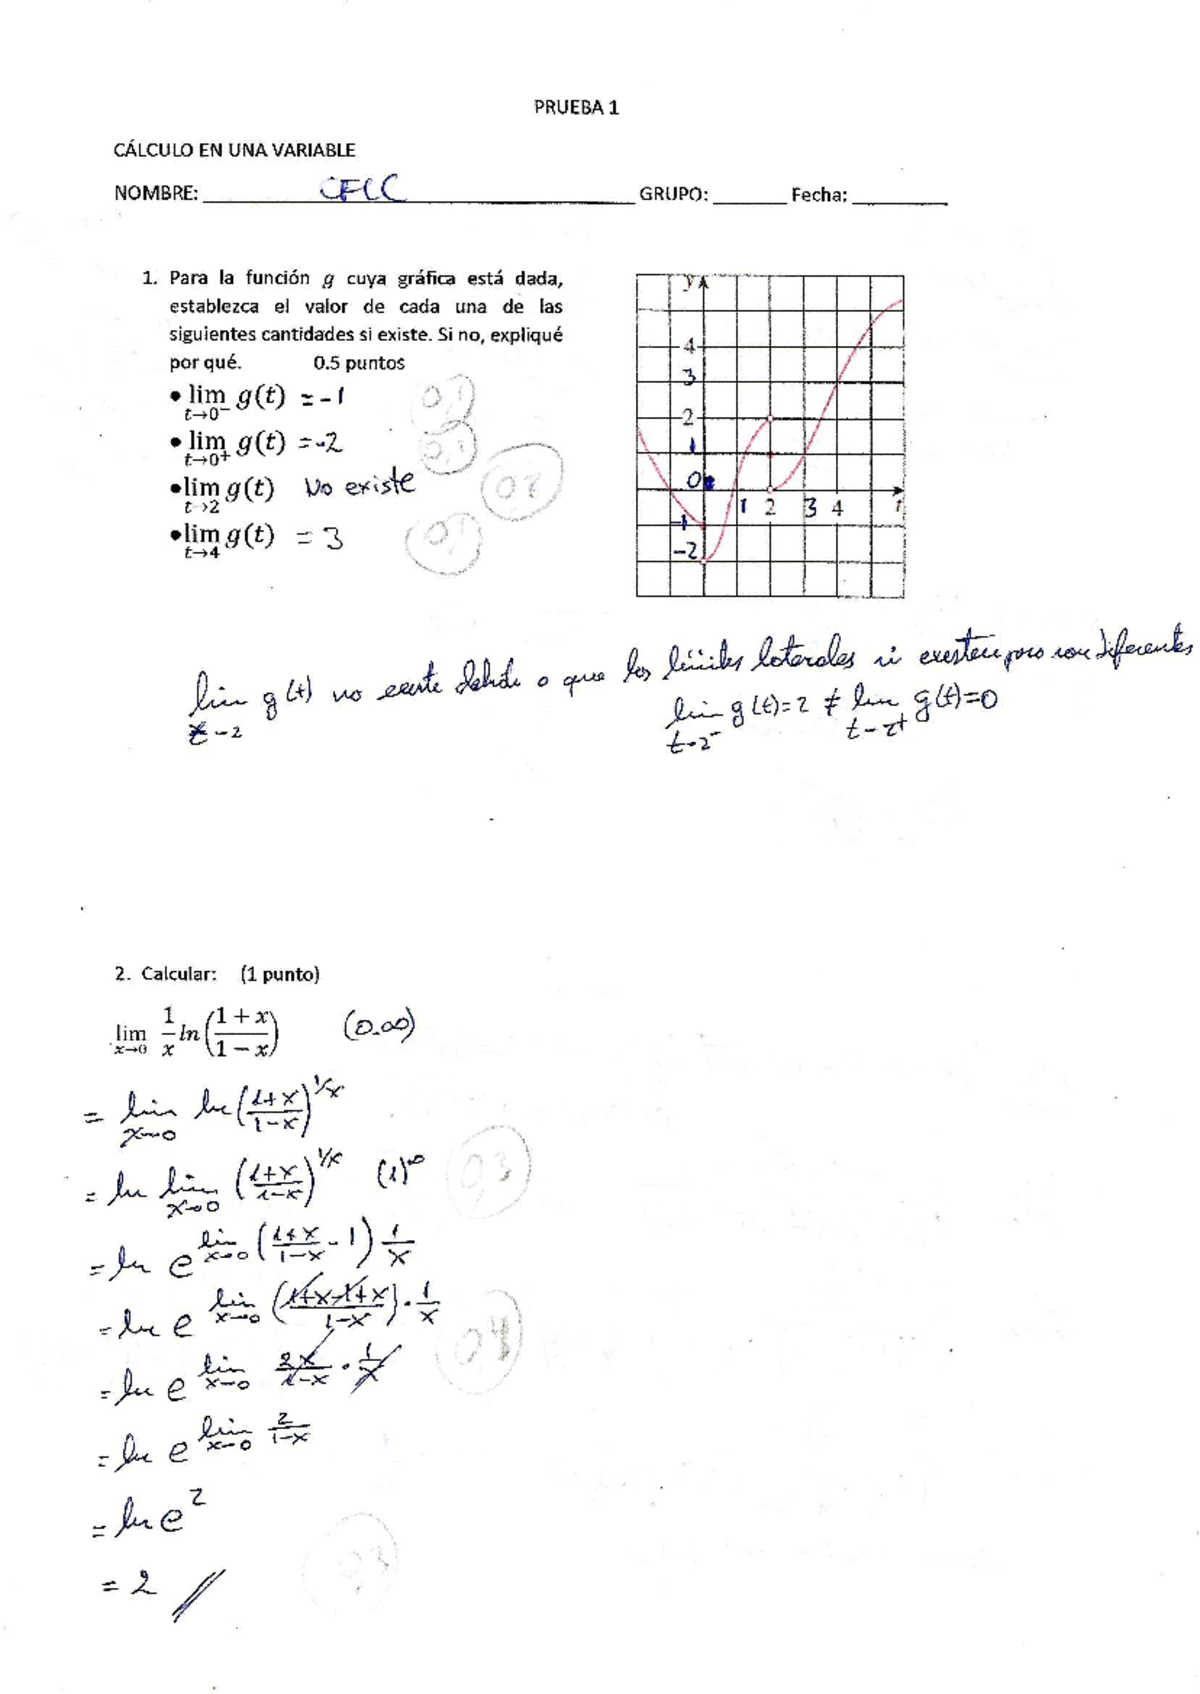 PRUEBA 1
CÁLCULO EN UNA VARIABLE
NOMBRE: CFLC GRUPO: Fecha:
1. Para la función g cuya gráfica está dada,
establezca el valor de cada una de las
siguientes cantidades si existe. Si no, expliqué
por qué. 0.5 puntos
• lim t→0⁻ g(t) = -1 0,1
• lim t→0⁺ g(t) = -2 0,1
• lim t→2 g(t) No existe 0,2
• lim t→4 g(t) = 3 0,1
y
4
3
2
1
0 1 2 3 4 t
-1
-2
lim t→2 g(t) no existe debido a que los límites laterales si existen pero son diferentes
lim t→2⁻ g(t)=2 ≠ lim t→2⁺ g(t)=0
2. Calcular: (1 punto)
lim x→0 1/x ln((1 + x)/(1 − x)) (0.∞)
= lim x→0 ln((1+x)/(1-x))^1/x
= ln lim x→0 ((1+x)/(1-x))^1/x (1)^∞ 0,3
= ln e^lim x→0 ((1+x)/(1-x) - 1) 1/x
= ln e^lim x→0 ((1+x-1+x)/(1-x)) · 1/x
= ln e^lim x→0 2x/(1-x) · 1/x 0,4
= ln e^lim x→0 2/(1-x)
= ln e^2
= 2 0,3